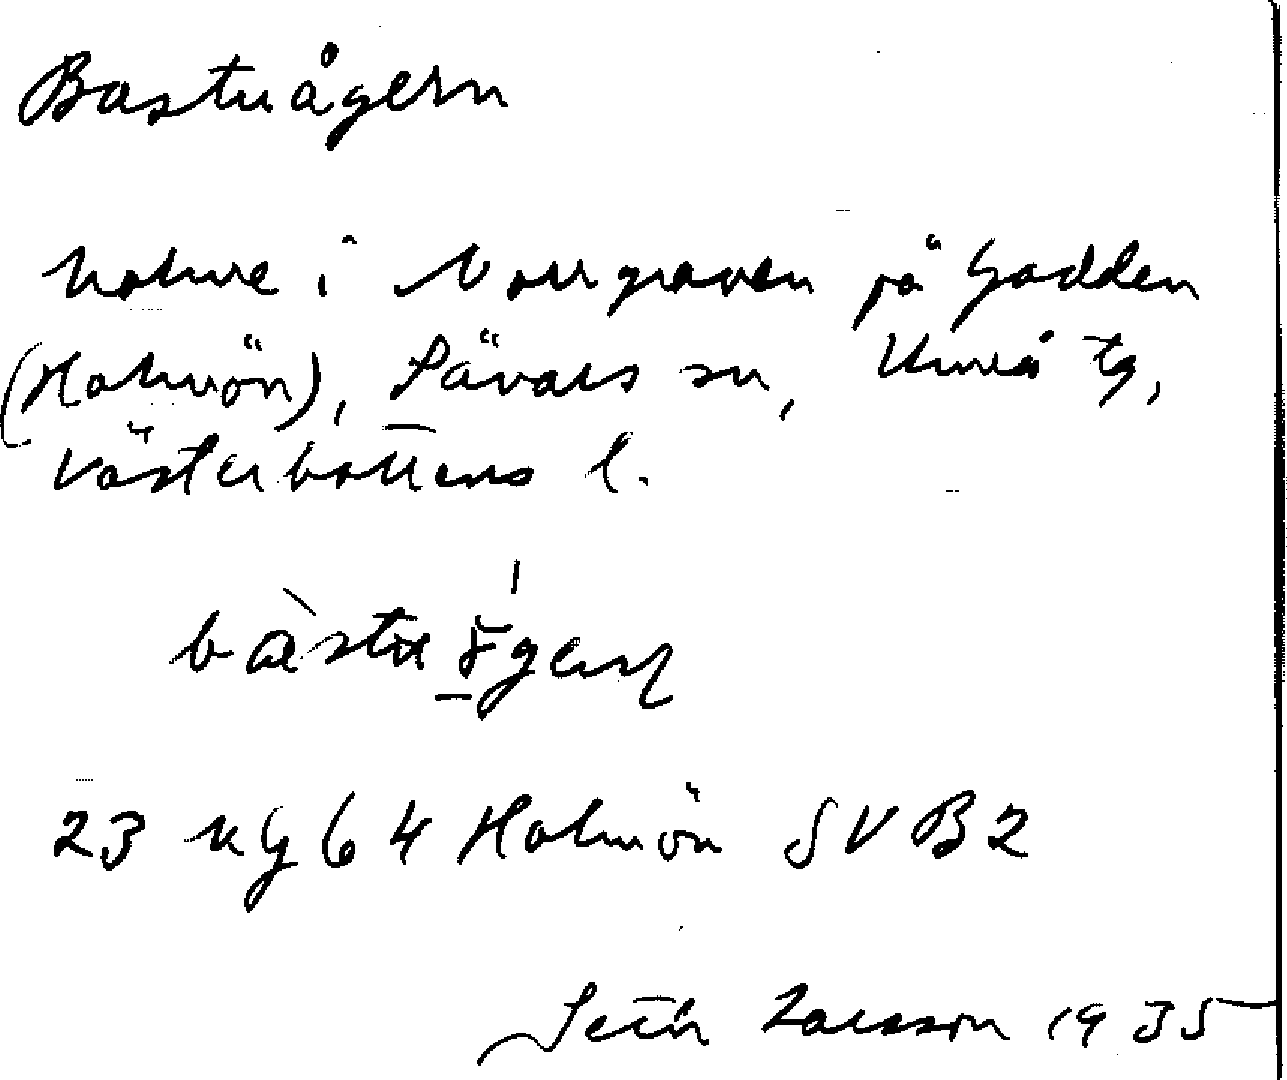 Bastuågern
holme i Norrgraven på Gadden
(Holmön), Sävars sn, Umeå tg,
Västerbottens l.
23 n G 6 4 Holmön SV B2
Seth Larsson 1935